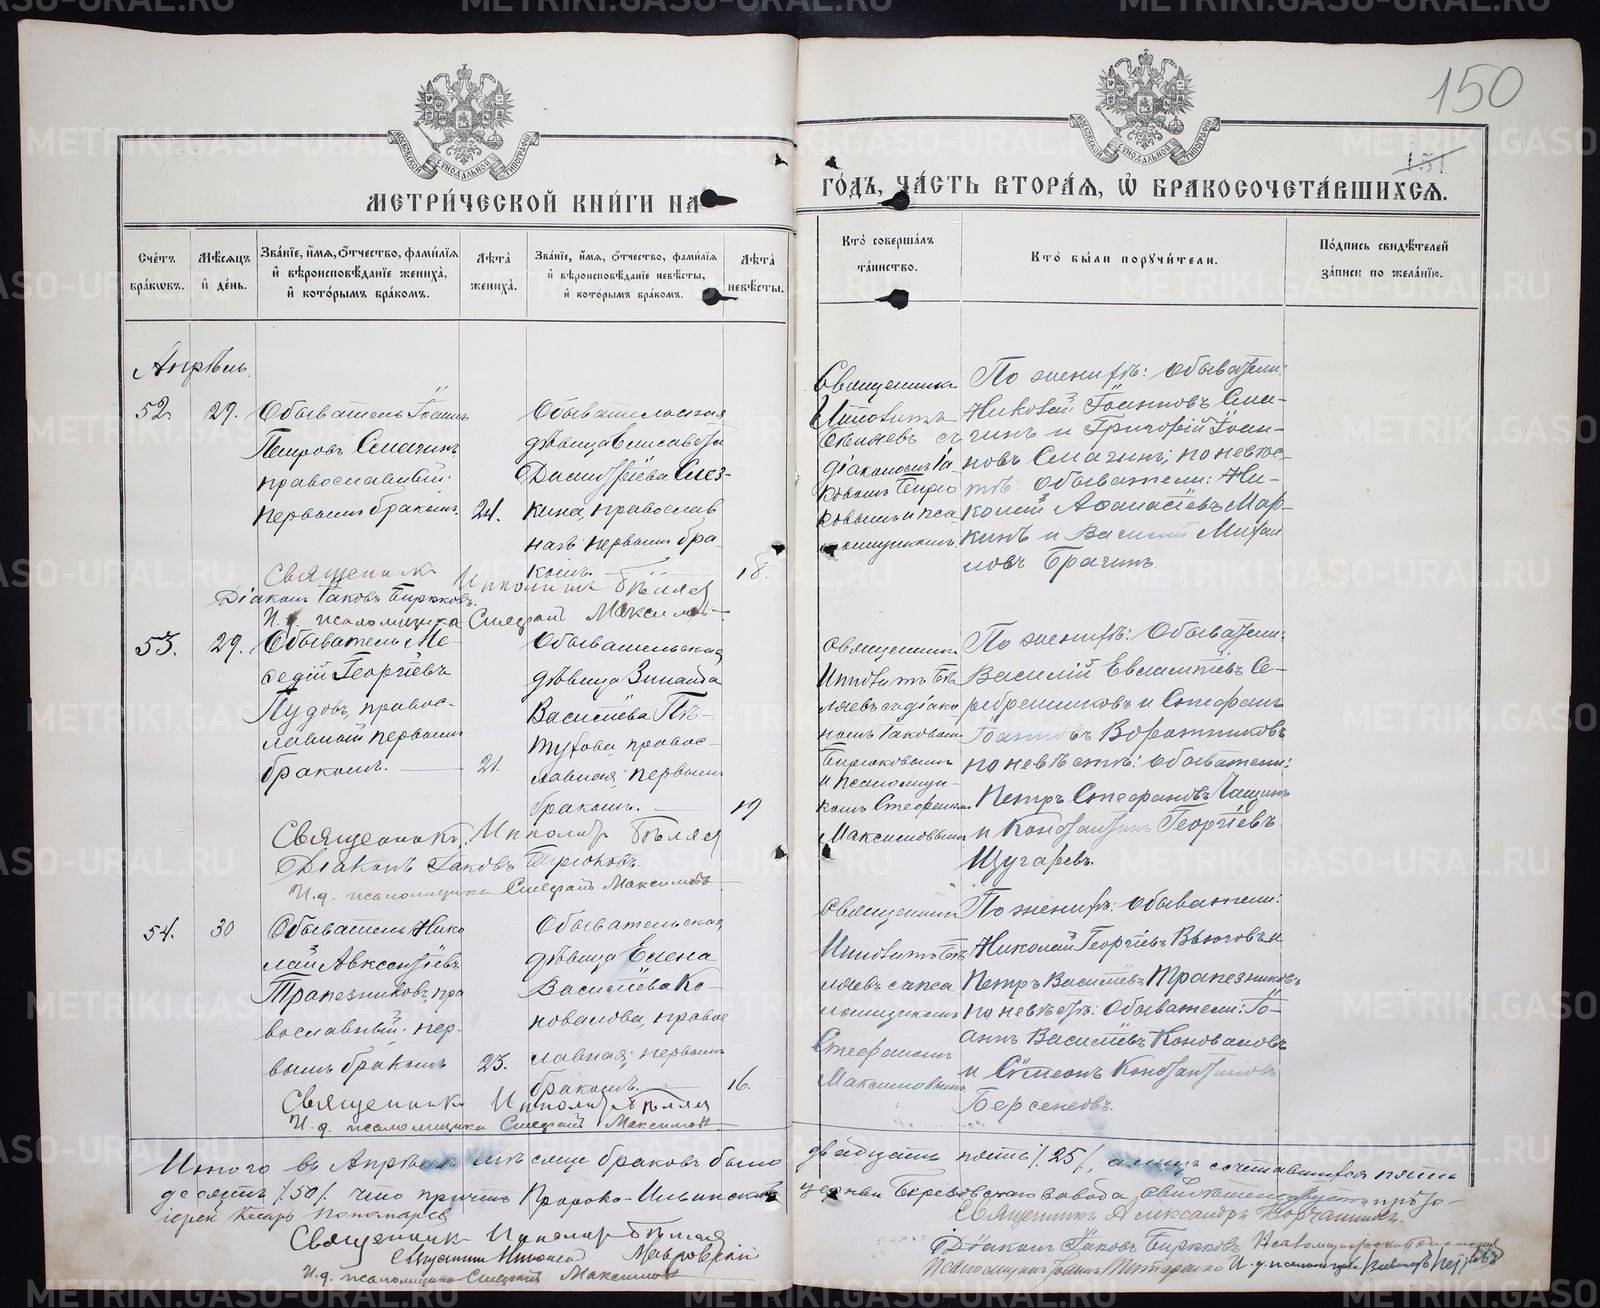 150
151
МЕТРИ́ЧЕСКОЙ КНИ́ГИ НА
ГО́ДЪ, ЧА́СТЬ ВТОРА́Я, Ѡ БРАКОСОЧЕТА́ВШИХСЯ.
Сче́тъ бра́кѡвъ.
Мѣ́сяцъ и҆ де́нь.
Зва́нїе, и҆́мя, о҆́тчество, фами́лїя
и҆ вѣроисповѣ́данїе жениха̀,
и҆ кото́рымъ бра́комъ.
Лѣ́та жениха̀.
Зва́нїе, и҆́мя, о҆́тчество, фами́лїя
и҆ вѣроисповѣ́данїе невѣ́сты,
и҆ кото́рымъ бра́комъ.
Лѣ́та невѣ́сты.
Кто̀ соверша́лъ
та́инство.
Кто̀ бы́ли порꙋчи́тели.
По́дпись свидѣ́телей
за́писи по жела́нїю.
Апрѣль
52.
29.
Обыватель Іоаннъ
Петровъ Смагинъ
православный:
первымъ бракомъ.
24.
Обывательская
дѣвица Елисавета
Димитріева Слез-
кина, православ
ная: первымъ бра
комъ.
18.
Священника
Ипполитъ
Бѣляевъ съ
діакономъ Іа
ковомъ Бирю
ковымъ и пса
ломщикомъ.
По женихѣ: обыватели:
Николай Іоанновъ Сма-
гинъ и Григорій Іоан-
новъ Смагинъ; по невѣс-
тѣ: обыватели: Ни-
колай Аѳанасіевъ Мар-
кинъ и Василій Михаи
ловъ Брагинъ
Священникъ Ипполитъ Бѣляев
Діаконъ Іаковъ Бирюковъ.
И. д. псаломщика Стефанъ Максимовъ
53.
29.
Обыватель Ме-
ѳодій Георгіевъ
Пудовъ, правос-
лавный первымъ
бракомъ.
21.
Обывательская
дѣвица Зинаида
Васильева Пѣ-
тухова правос-
лавная; первымъ
бракомъ.
19
священник
Ипполитъ Бѣ
ляевъ съ діако
номъ Іаковомъ
Бирюковымъ
и псаломщи-
комъ Стефаномъ
Максимовымъ
По женихѣ: Обыватели:
Василій Евлампіевъ Се-
ребрениковъ и Стефанъ
Іоанновъ Воротниковъ
по невѣстѣ: обыватели:
Петръ Стефановъ Чащинъ
и Константинъ Георгіевъ
Щугаревъ.
Священникъ Ипполитъ Бѣляев
Діаконъ Іаковъ Бирюковъ.
И. д. псаломщика Стефанъ Максимовъ
54.
30
Обыватель Нико
лай Авксентіевъ
Трапезниковъ, пра
вославный; пер-
вымъ бракомъ
23.
Обывательская
дѣвица Елена
Васильева Ко-
новалова, правос
лавная; первымъ
бракомъ.
16.
священник
Ипполитъ Бѣ
ляевъ с пса
ломщикомъ
Стефаномъ
Максимовымъ
По женихѣ: обыватели:
Николай Георгіевъ Вьюговъ и
Петръ Васильевъ Трапезниковъ
по невѣстѣ: Обыватели: Іо-
аннъ Васильевъ Коноваловъ
и Симеонъ Константиновъ
Берсеневъ.
Священникъ Ипполитъ Бѣляев
И. д. псаломщика Стефанъ Максимовъ.
Итого въ Апрѣлѣ мѣсяце браковъ было двадцать пять /25/, а лицъ сочетавшихся пять
десятъ /50/. что причтъ Пророко-Ильинской церкви Березовскаго завода
іерей Кесарь Пономарев
Священникъ Ипполитъ Бѣляев
Священникъ Александръ
И. д. псаломщика Стефанъ Максимов
Діаконъ Іаковъ Бирюковъ
Псаломщикъ Іоаннъ
И. д. псаломщика
METRIKI.GASO-URAL.RU